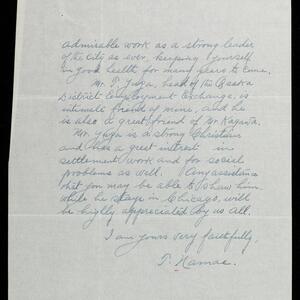 admirable work as a strong leader
of the city as ever, keeping yourself
in good health for many years to come.
Mr. T. Yuga, head of the Osaka
District employment exchange, is
intimate friend of mine, and he
is also a great friend of Mr. Kagawa.
Mr. Yuga is a strong Christian
and has a great interest in
settlement work and for social
problems as well. Any assistance
that you may be able to show him,
while he stays in Chicago, will
be highly appreciated by us all.
I am yours very faithfully,
T. Namae.